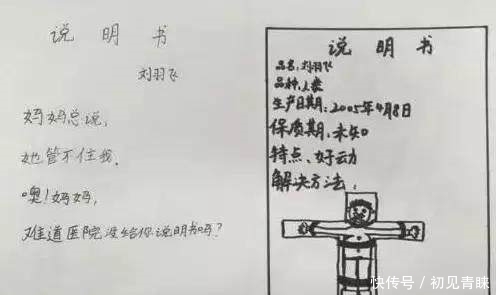 说明书
刘羽飞
妈妈总说，
她管不住我。
噢！妈妈，
难道医院没给你说明书吗？
说明书
品名：刘羽飞
品种：人类
生产日期：2005年4月8日
保质期：未知
特点：好动
解决方法：
快传号／初见青睐